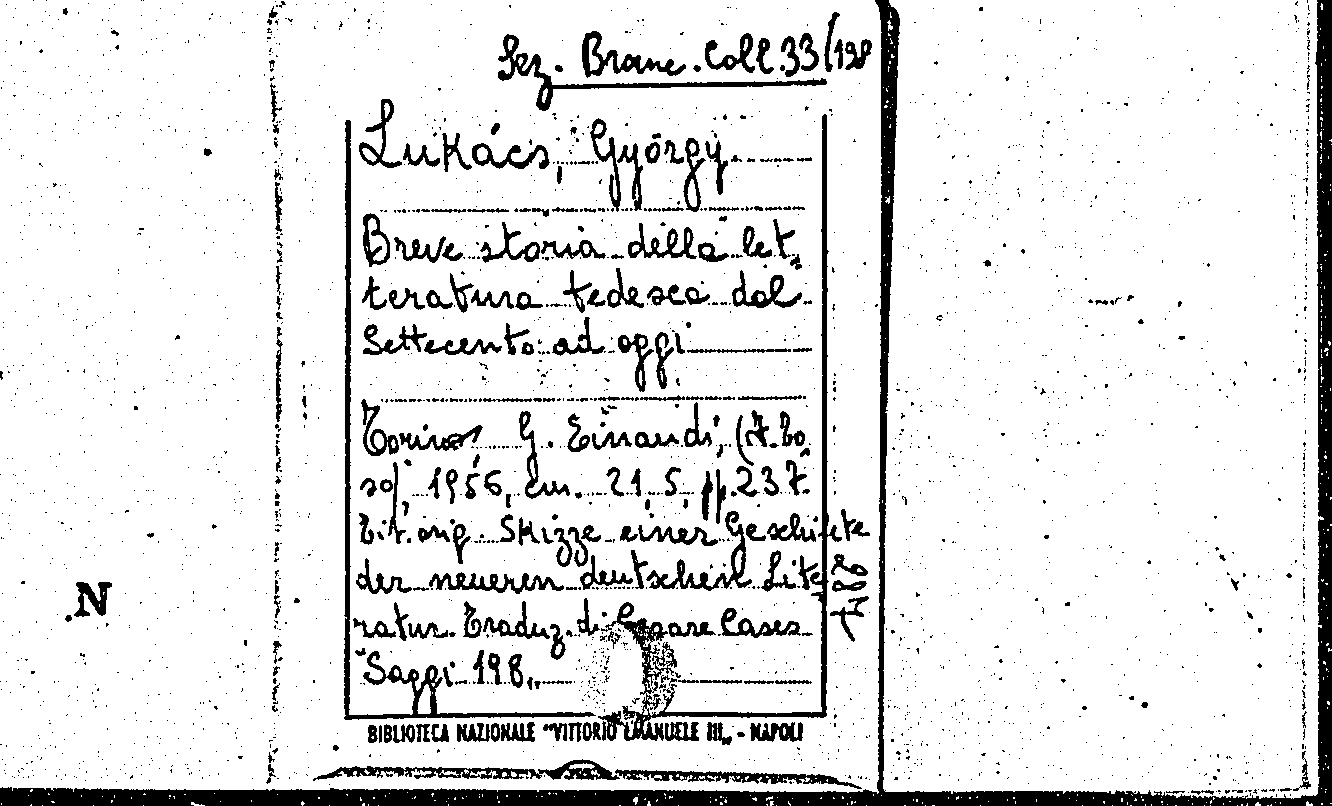 Sez. Branc. Coll. 33/198
Lukács, György.
Breve storia della let=
teratura tedesca dal
Settecento ad oggi.
Torino, G. Einaudi,
1956, cm. 21,5, pp. 237.
Tit. orig. Skizze einer Geschichte
der neueren deutschen Lite=
ratur. Traduz. di Cesare Cases
"Saggi 198"
BIBLIOTECA NAZIONALE "VITTORIO EMANUELE III" - NAPOLI
N